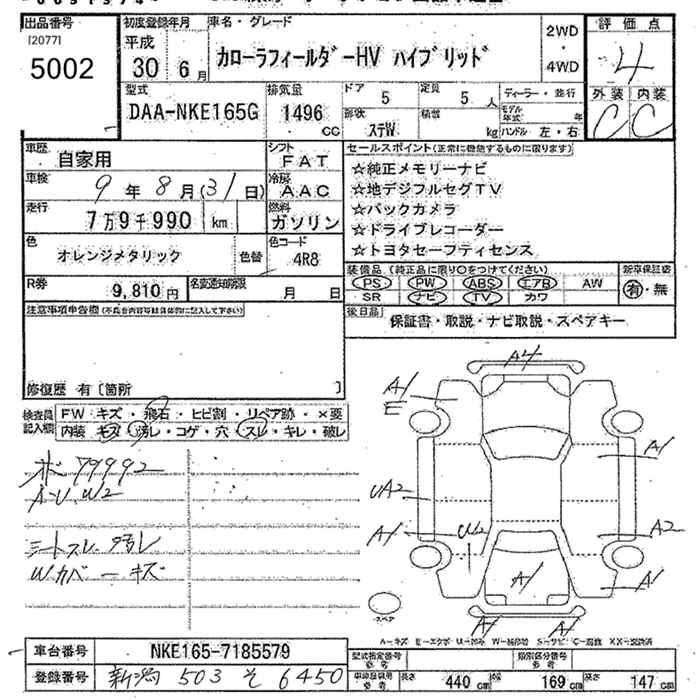 出品番号
[2077]
5002
初度登録年月
平成
30 6月
車名・グレード
カローラフィールダーHV ハイブリッド
2WD
・
4WD
評価点
4
外装 内装
C C
型式
DAA-NKE165G
排気量
1496
CC
ドア 5
形状 ステW
定員 5 人
積載 kg
ディーラー・並行
モデル年式 年
ハンドル 左・右
車歴
自家用
シフト
FAT
車検
9 年 8 月(31日)
冷房
AAC
走行
7万9千990 km
燃料
ガソリン
色
オレンジメタリック
色替
色コード
4R8
R券
9,810円
名変通知期限
月 日
セールスポイント(正常に機能するものに限ります)
☆純正メモリーナビ
☆地デジフルセグTV
☆バックカメラ
☆ドライブレコーダー
☆トヨタセーフティセンス
装備品(純正品に限り○をつけてください)
PS PW ABS エアB AW
SR ナビ TV カワ
新車保証書
有・無
後日品
保証書・取説・ナビ取説・スペアキー
注意事項申告欄(不具合内容等は具体的に記入して下さい)
修復歴 有[箇所 ]
検査員記入欄
FW キズ・飛石・ヒビ割・リペア跡・×要
内装 キズ・汚レ・コゲ・穴・スレ・キレ・破レ
79992
A・U、W2
シートスレ、汚レ
Wカバーキズ
A4
A1
E
A1
UA2
A1
U2
A2
A1
A1
A1
A1
スペア
A=キズ E=エクボ U=凹み W=補修跡 S=サビ C=腐蝕 XX=交換済
車台番号
NKE165-7185579
登録番号
新潟 503 そ 6450
型式指定番号
参考
類別区分番号
参考
車検証記載
参考
長さ 440 cm
幅 169 cm
高さ 147 cm